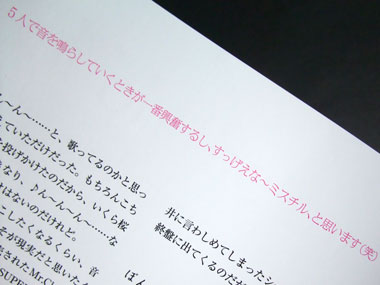 ５人で音を鳴らしていくときが一番興奮するし、すっげえな～ミスチル、と思います（笑）
ん～ん～……と、歌ってるのかと思っ
っていただけだった。もちろんこち
投げかけたのだから、いくら桜
なり、♪ん～ん～ん～……な
はないのだけれど。
こしたくなるくらい、音
そが現実だと思いた
されたMr.C
SUPER
井に言わしめてしまったシ
終盤に出てくるのだが
ぽん